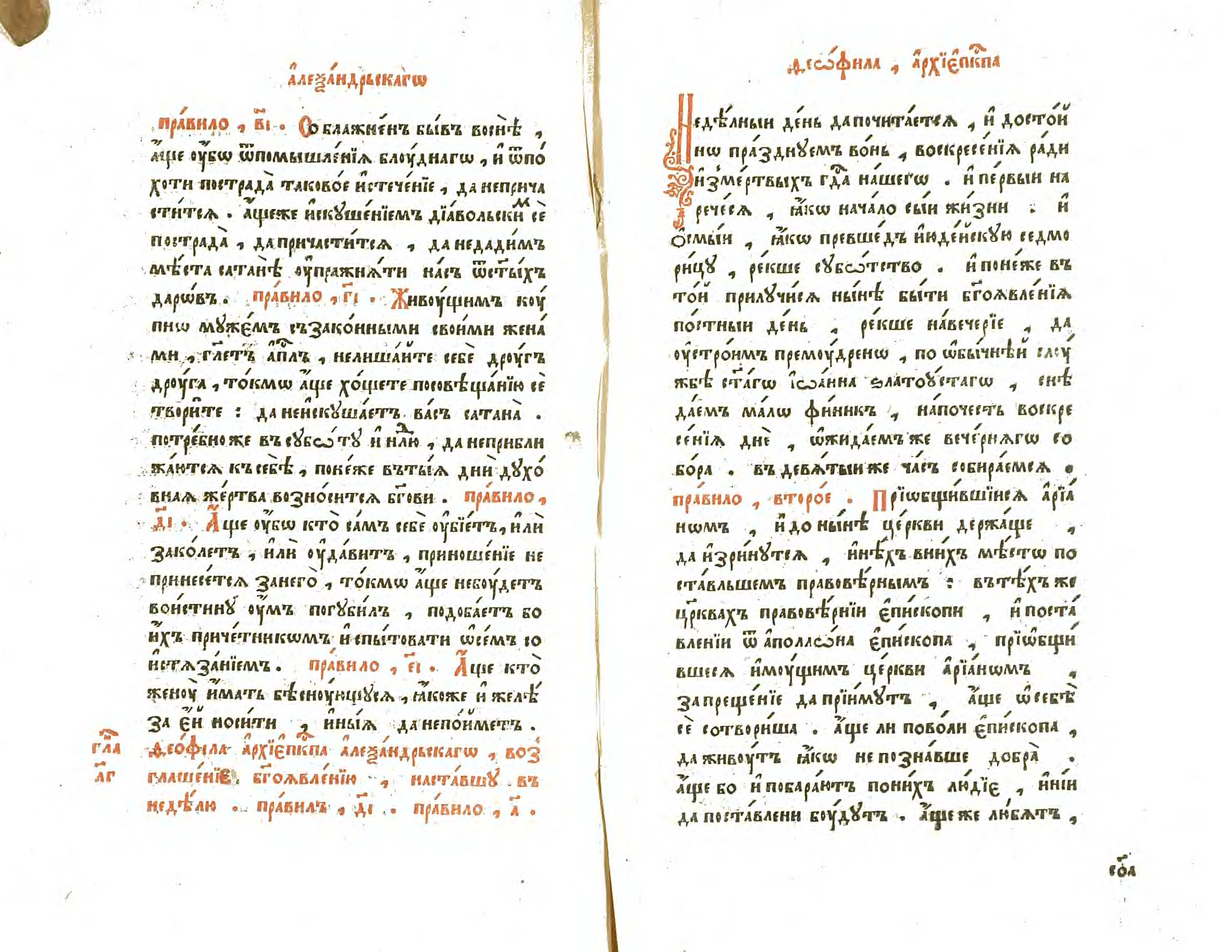 а҆леѯа́ндрьскагѡ
пра́вило , в҃і . Соблажне́нъ бы́въ воснѣ̀ ,
а҆́ще оу҆́бѡ ѿпомышле́нїѧ блоу́днагѡ , и҆ ѿпо́
хоти пострада̀ таково́е и҆стече́нїе , да неприча
сти́тсѧ . а҆́щеже и҆скуше́нїемъ дїа́вольскиⷨ сѐ
пострада̀ , да причасти́тсѧ , да недади́мъ
мѣ́ста сатанѣ̀ оу҆пражнѧ́ти на́съ ѿст҃ы́хъ
даро́въ . пра́вило , г҃і . Живоу́щимъ коу́
пнѡ муже́мъ съзако́нными свои́ми жена́
ми , гл҃етъ а҆пⷭ҇лъ , нелиша́йте себѐ дроу́гъ
дроу́га , то́кмѡ а҆́ще хо́щете посовѣща́нїю сѐ
твори́те : да неискуша́етъ ва́съ сатана̀ .
потре́бно же въ субѡ́ту и҆ нⷣлю , да неприбли
жа́ютсѧ къ себѣ̀ , поне́же въ ты́ѧ дни̑ духо́
внаѧ же́ртва возно́ситсѧ бг҃ови . пра́вило ,
д҃і . А҆́ще оу҆́бѡ кто̀ са́мъ себѐ оу҆бїе́тъ , и҆лѝ
зако́летъ , и҆лѝ оу҆да́витъ , приноше́нїе не
принесе́тсѧ занего̀ , то́кмѡ а҆́ще небоу́детъ
вои́стину оу҆́мъ погуби́лъ , подоба́етъ бо
и҆́хъ приче́тникѡмъ и҆спы́товати ѡ҆се́мъ со
и҆стѧза́нїемъ . пра́вило , е҃і . А҆́ще кто̀
женоу̀ и҆́мать бѣсноу́ющуюсѧ , ꙗ҆́коже и҆ желѣ́
за є҆́й носи́ти , и҆ны́ѧ да непо́йметъ .
гл҃а Ѳео́фїла а҆рхїєпⷭ҇кпа а҆леѯа́ндрьскагѡ , во́з
л҃г глаше́нїе бг҃оѧвле́нїю , наста́вшу въ
недѣ́лю . пра́вилъ , д҃і . пра́вило , а҃ .
ѳеѡ́фила , а҆рхїєпⷭ҇кпа
Недѣ́лныи де́нь да почита́етсѧ , и҆ досто́й
нѡ пра́зднуемъ во́нь , воскресе́нїѧ ра́ди
и҆зме́ртвыхъ гдⷭ҇а на́шегѡ . и҆ пе́рвыи на
рече́сѧ , ꙗ҆́кѡ нача́ло сы́и жи́зни : и҆
ѻ҆смы́и , ꙗ҆́кѡ превше́дъ и҆юде́йскую седмо
рицу , ре́кше субѡ́тство . и҆ поне́же въ
то́й прилучи́сѧ ны́нѣ бы́ти бг҃оѧвле́нїѧ
по́стныи де́нь , ре́кше наве́черїе , да
оу҆стро́имъ премоу́дренѡ , по ѡ҆бы́чнѣй слоу́
жбѣ ст҃а́гѡ і҆ѡа́нна златоу́стагѡ , снѣ
да́емъ ма́лѡ фи́никъ , на́почесть воскре
се́нїѧ днѐ , ѡ҆жида́емъже вече́рнѧгѡ со
бо́ра . въ девѧ́тыиже ча́съ собира́емсѧ .
пра́вило , второ́е . Прїѡбщи́вшїисѧ а҆рїа́
нѡмъ , и҆ до ны́нѣ це́ркви держа́ще ,
да и҆зри́нутсѧ , и҆нѣ́хъ вни́хъ мѣ́стѡ по
ста́вльшемъ правовѣ́рнымъ : въ тѣ́хъ же
цр҃квахъ правовѣ́рнїи є҆пи́скопи , и҆ поста́
вленїи ѿ а҆поллѡ́на є҆пи́скопа , прїѡбщи́
вшесѧ и҆моу́щимъ це́ркви а҆рїа́нѡмъ ,
запреще́нїе да прїи́мутъ , а҆́ще ѡ҆себѣ̀
сѐ сотвори́ша . а҆́ще ли пово́ли є҆пи́скопа ,
да живоу́тъ ꙗ҆́кѡ не позна́вше добра̀ .
а҆́ще бо и҆ побара́ютъ пони́хъ лю́дїє , и҆ні́и
да поста́влени боу́дутъ . а҆́ще же лю́бѧтъ ,
со҃а